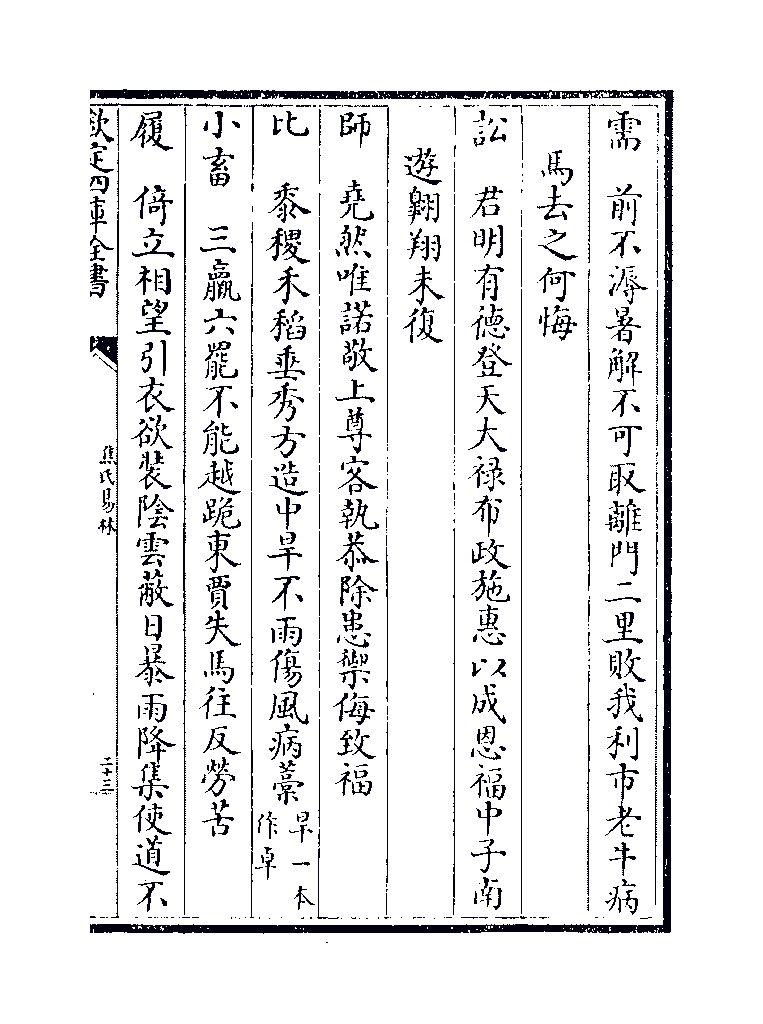 需　前不溽暑解不可取離門二里敗我利市老牛病
馬去之何悔
訟　君明有德登天大祿布政施惠以成恩福中子南
遊翺翔未復
師　堯然唯諾敬上尊客執恭除患禦侮致福
比　黍稷禾稻垂秀方造中旱不雨傷風病藁旱一本作卓
小畜　三羸六罷不能越跪東賈失馬往反勞苦
履　倚立相望引衣欲裝陰雲蔽日暴雨降集使道不
欽定四庫全書
焦氏易林
二十三